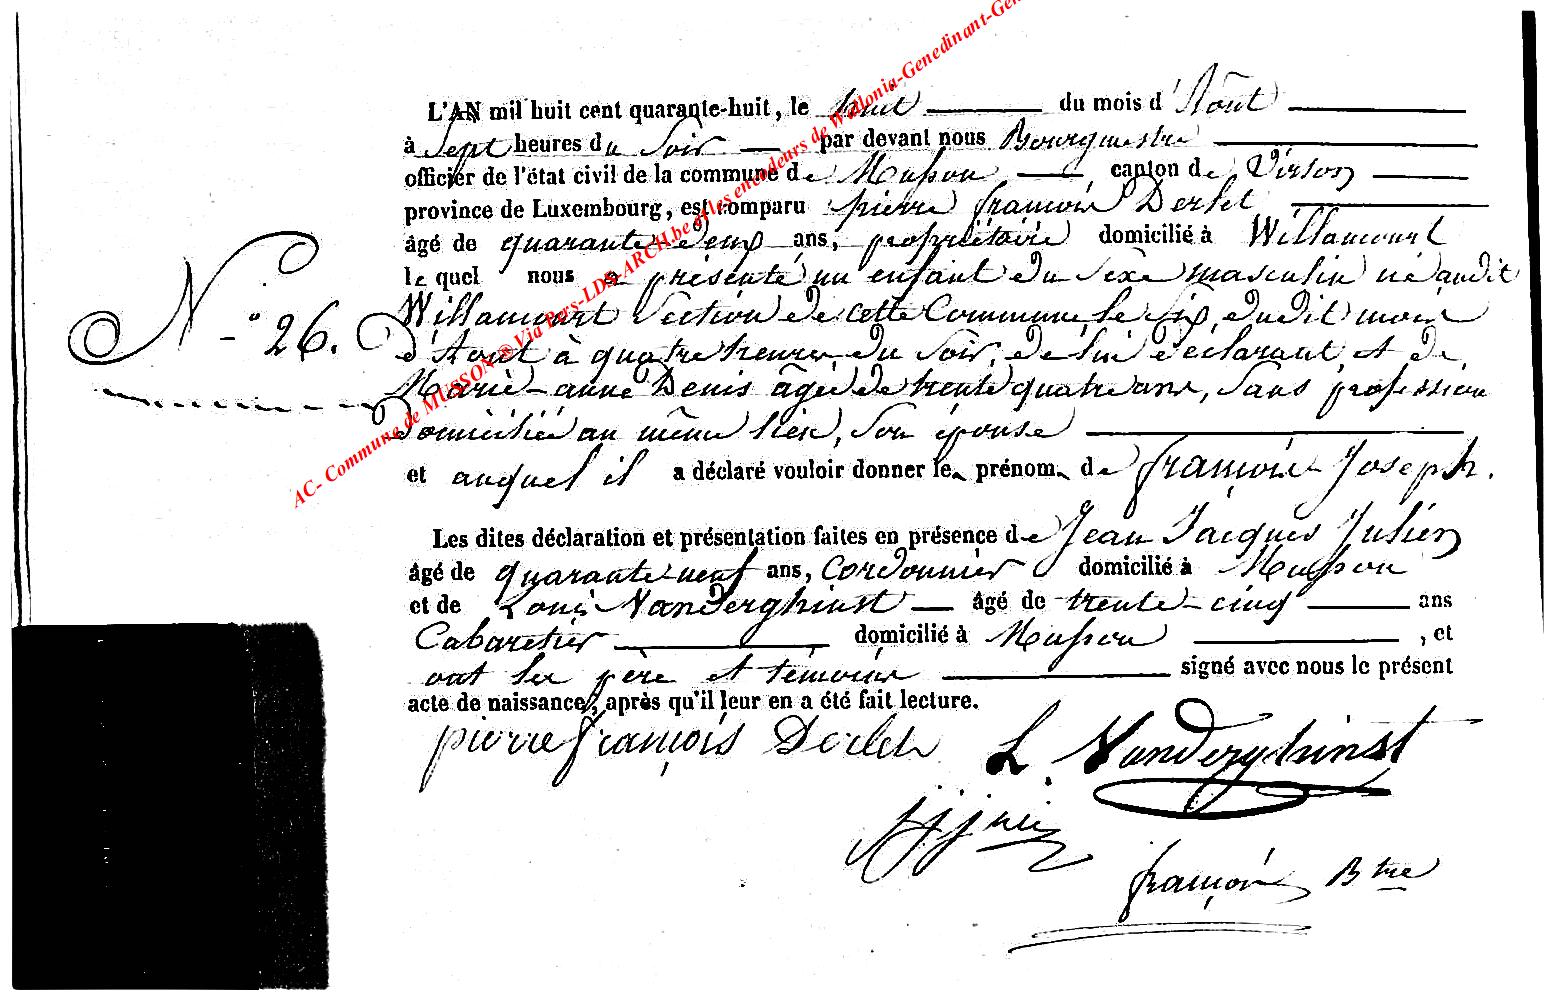 L'AN mil huit cent quarante-huit, le huit du mois d'Août
à Sept heures du Soir par devant nous Bourgmestre
officier de l'état civil de la commune de Musson canton de Virton
province de Luxembourg, est comparu pierre françois Derlet
âgé de quarante deux ans, propriétaire domicilié à Willancourt
le quel nous a présenté un enfant du sexe masculin né audit
N° 26. Willancourt Section de cette Commune, le six dudit mois
d'Aout à quatre heures du Soir, de lui déclarant et de
Marie-anne Denis âgée de trente quatre ans, Sans profession
domiciliée au même lieu, Son épouse
et auquel il a déclaré vouloir donner les prénoms de françois-Joseph.
Les dites déclaration et présentation faites en présence de Jean Jacques Julien
âgé de quarante-neuf ans, Cordonnier domicilié à Musson
et de Louis Vanderghinst âgé de trente-cinq ans
Cabaretier domicilié à Musson , et
ont les père et témoins signé avec nous le présent
acte de naissance, après qu'il leur en a été fait lecture.
pierre françois Derlet L. Vanderghinst
françois Btre
AC- Commune de MUSSON ® Via Pers-LDS-ARCH.be et les encodeurs de Wallonia-Genedinant-Gen